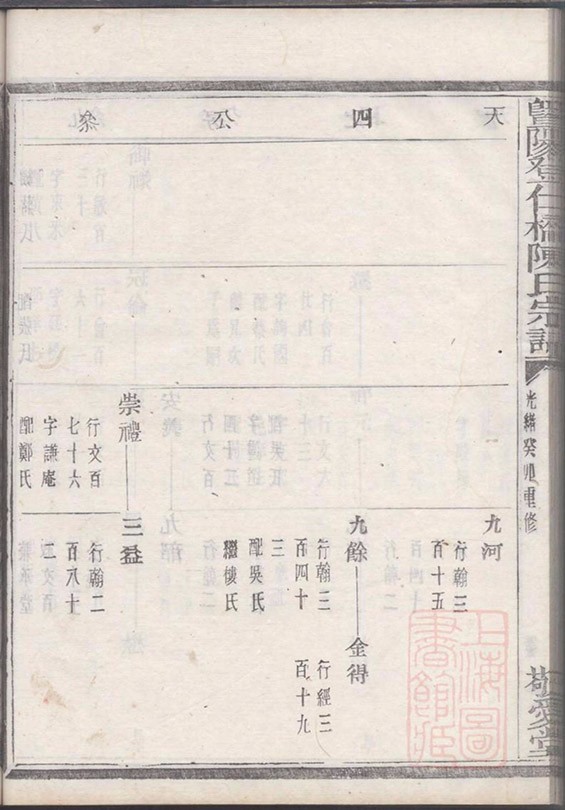 暨陽登仁橋陳氏宗譜
光緒癸卯重修
敬愛堂
天四公叅
九河
行翰三
百十五
九餘
行翰三
百四十
三
配吳氏
繼樓氏
金得
行經三
百十九
崇禮
行文百
七十六
字謙庵
配鄭氏
三益
行翰二
百八十
二
上海圖書館藏